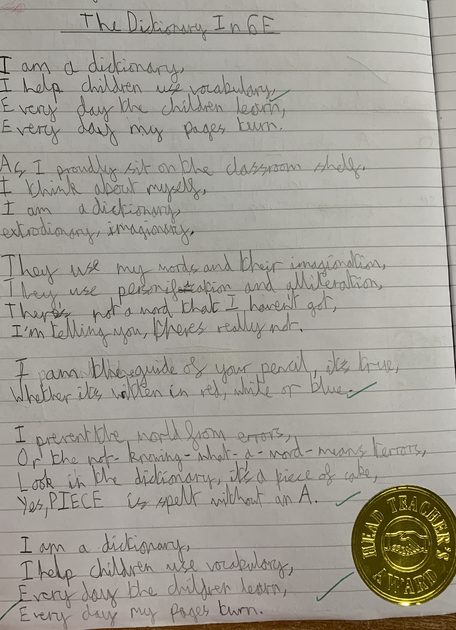 The Dictionary In 6E
I am a dictionary,
I help children use vocabulary,
Every day the children learn,
Every day my pages turn.
As I proudly sit on the classroom shelf,
I think about myself,
I am a dictionary,
extrodionary, imagionary.
They use my words and their imagionation,
They use personification and alliteration,
There's not a word that I haven't got,
I'm telling you, theres really not.
I am the guide of your pencil, its true,
Whether its written in red, white or blue.
I prevent the world from errors,
Or the not-knowing-what-a-word-means terrors,
Look in the dictionary, it's a piece of cake,
Yes, PIECE is spelt without an A.
I am a dictionary,
I help children use vocabulary,
Every day the children learn,
Every day my pages turn.
HEAD TEACHER'S AWARD